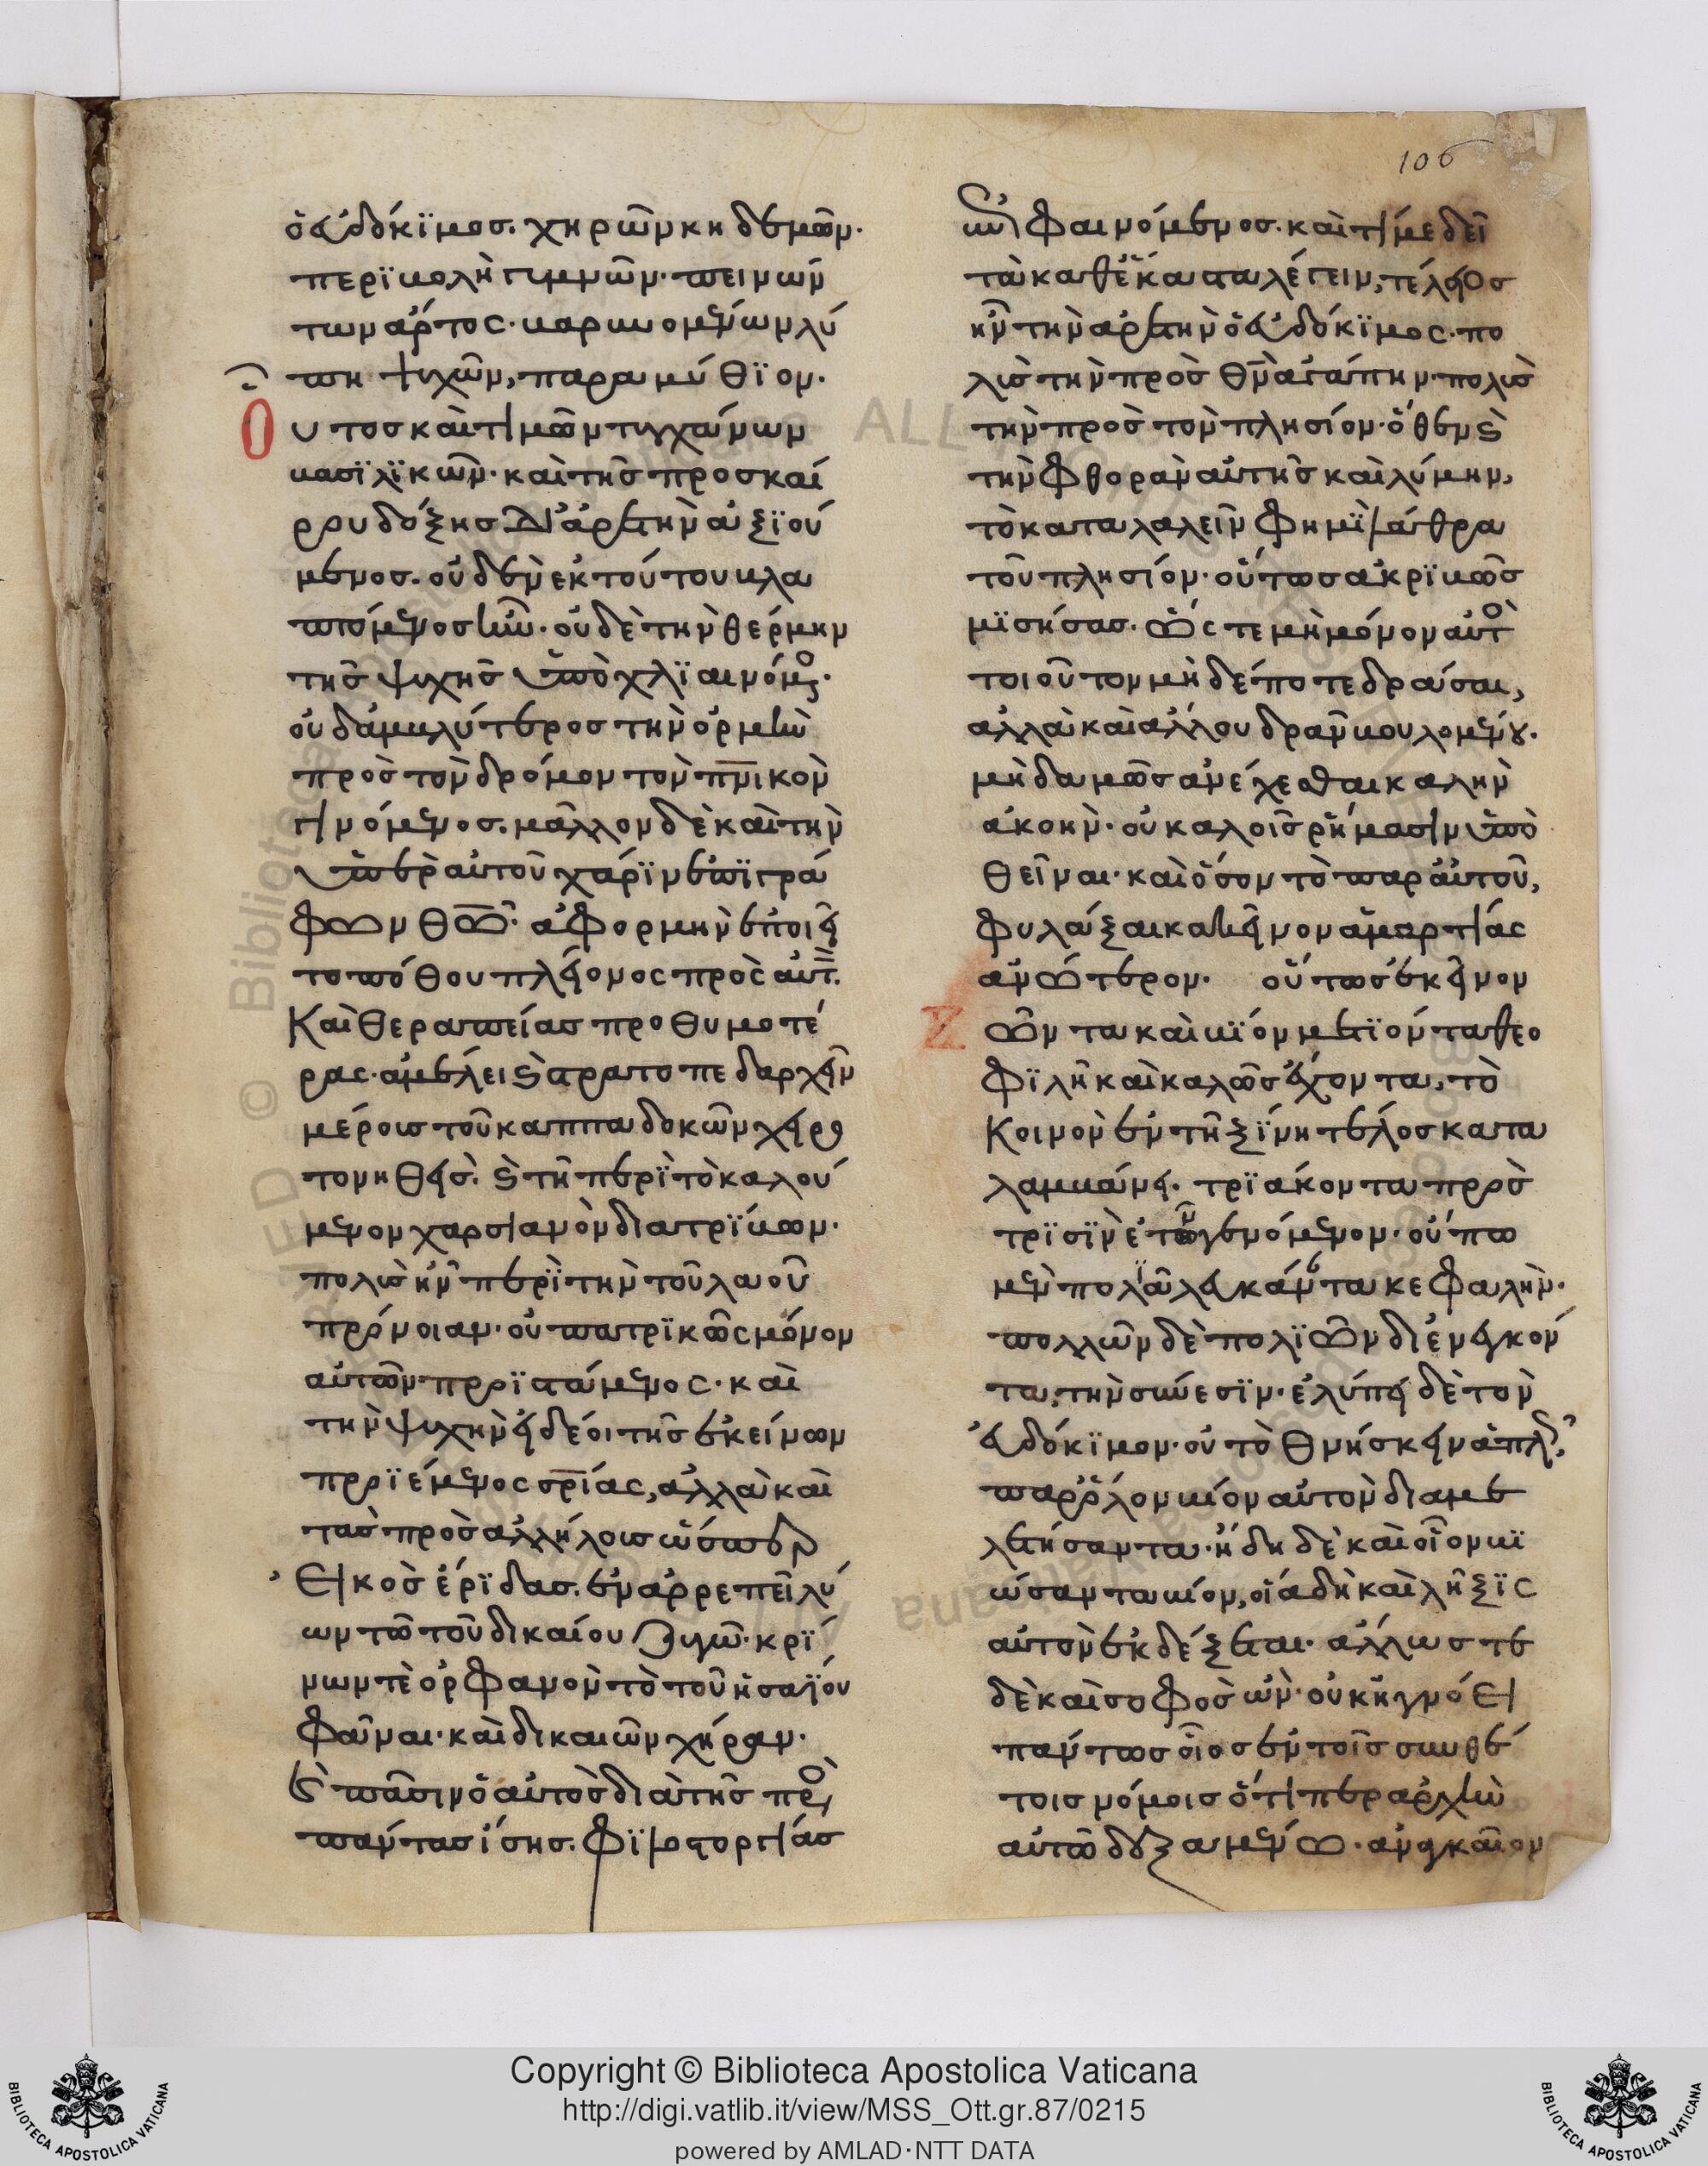 106
ὁ εὐδόκϊμος· χηρῶν κηδεμών·
περϊβολὴ γυμνῶν· πεινών
των ἄρτος· βαρυνομένων λύ
πη ψυχῶν, παραμύθϊον·
Οὗτος καὶ τιμῶν τυγχάνων
βασϊλϊκῶν· καὶ τῆς προσκαί
ρου δόξης δι' ἀρετὴν ἀξϊού
μενος· οὐδὲν ἐκ τούτου βλα
πτόμενος ἦν· οὐδὲ τὴν θέρμην
τῆς ψυχῆς ὑποχλϊαινόμενος·
οὐδ' ἀμβλύτερος τὴν ὁρμὴν
πρὸς τὸν δρόμον τὸν πνικὸν
γινόμενος· μᾶλλον δὲ καὶ τὴν
ὑπὲρ αὐτοῦ χάρϊν ἐπϊγρά
φων θῶ· ἀφορμὴν ἐποιεῖ
το πόθου πλείονος πρὸς αὐτ
Καὶ θεραπείας προθυμοτέ
ρας· ἀμέλει στρατοπεδαρχεῖν
μέροις τοῦ καππαδοκῶν χειρο
τονηθείς· ἐν τῆ περὶ τὸ καλού
μενον χαρσιανὸν διατρίβων·
πολὺς ἦν περὶ τὴν τοῦ λαοῦ
πρόνοιαν· οὐ πατρϊκῶς μόνον
αὐτῶν προϊστάμενος· καὶ
τὴν ψυχὴν εἰ δέοι τῆς ἐκείνων
προϊέμενος σρίας, ἀλλὰ καὶ
τὰς πρὸς ἀλλήλους ὥσπερ
Εἰκὸς ἔρϊδας· ἐν ἀρρεπεῖ λύ
ων τῶ τοῦ δικαίου ζυγῶ· κρί
νων τὲ ὀρφανὸν τὸ τοῦ ἡσαΐου
φᾶναι· καὶ δικαιῶν χήραν·
ἐν πᾶσιν ὁ αὐτὸς διὰ τῆς περὶ
πάντας ἴσης· φϊλοστοργίας
ὢν φαινόμενος· καὶ τί με δεῖ
τὰ καθέκαστα λέγειν, τέλειος
ἦν τὴν ἀρετὴν ὁ εὐδόκϊμος· πο
λὺς τὴν πρὸς θν ἀγάπην· πολὺς
τὴν πρὸς τὸν πλησίον· ὅθεν καὶ
τὴν φθορὰν αὐτῆς καὶ λύμην,
τὸ καταλαλεῖν φημὶ λάθρα
τοῦ πλησίον· οὕτως ἀκρϊβῶς
μϊσήσας· ὥς τε μὴ μόνον αὐτὸ
τοιοῦτον μηδέποτε δράσαι,
ἀλλὰ καὶ ἄλλου δρᾶν βουλομένου·
μηδαμῶς ἀνέχεσθαι καλὴν
ἀκοὴν· οὐ καλοῖς ῥήμασιν ὑπο
θεῖναι· καὶ ὅσον τὸ παρ' αὐτοῦ,
φυλάξαι κακεῖνον ἁμαρτίας
ἀνώτερον· οὕτως ἐκεῖνον
Ζῶντα καὶ βίον μετϊόντα θεο
φϊλῆ καὶ καλῶς ἔχοντα, τὸ
Κοινὸν ἐν τῆ ξΐνη τέλος κατα
λαμβάνει· τρϊάκοντα πρὸς
τρϊσὶν ἐτῶν γενόμενον· οὔπω
μὲν πολϊᾶ λευκάναντα κεφαλὴν·
πολλῶν δὲ πολϊῶν διενεγκόν
τα, τὴν σύνεσϊν· ἐλύπει δὲ τὸν
εὐδόκϊμον· οὐ τὸ θνήσκειν ἁπλῶς
παρ' ὅλον βίον αὐτὸν διαμε
λετήσαντα· ἤδη δὲ καὶ οἷον βϊ
ώσαντα βίον, οἵα δὴ καὶ λῆξϊς
αὐτὸν ἐκδέξεται· ἄλλως τε
δὲ καὶ σοφὸς ὢν· οὐκ ἠγνόει
πάντως οἷος ἐν τοῖς συνθέ
τοις νόμοις ὅτι περ ἀρχὴν
αὐτῶ δεξαμένω· ἀναγκαῖον
Copyright © Biblioteca Apostolica Vaticana
http://digi.vatlib.it/view/MSS_Ott.gr.87/0215
powered by AMLAD·NTT DATA
BIBLIOTECA APOSTOLICA VATICANA
BIBLIOTECA APOSTOLICA VATICANA